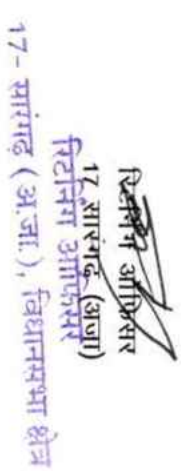 रिटर्निंग ऑफिसर
17 सारंगढ़ (अजा)
रिटर्निंग ऑफिसर
17- सारंगढ़ (अ.जा.), विधानसभा क्षेत्र